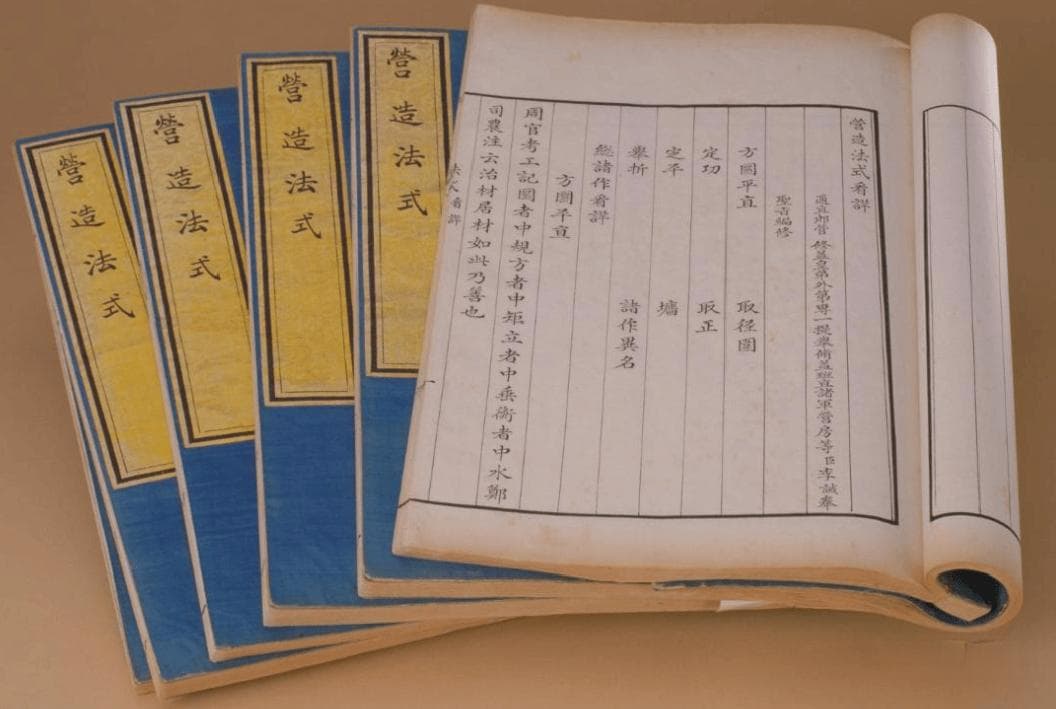 營造法式
營造法式
營造法式
營造法式
營造法式看詳
通直郎管修蓋皇弟外第專一提舉修蓋班直諸軍營房等臣李誡奉
聖旨編修
方圜平直 取徑圍
定功 取正
定平 墻
舉折 諸作異名
總諸作看詳
方圜平直
周官考工記圜者中規方者中矩立者中垂衡者中水鄭
司農注云治材居材如此乃善也